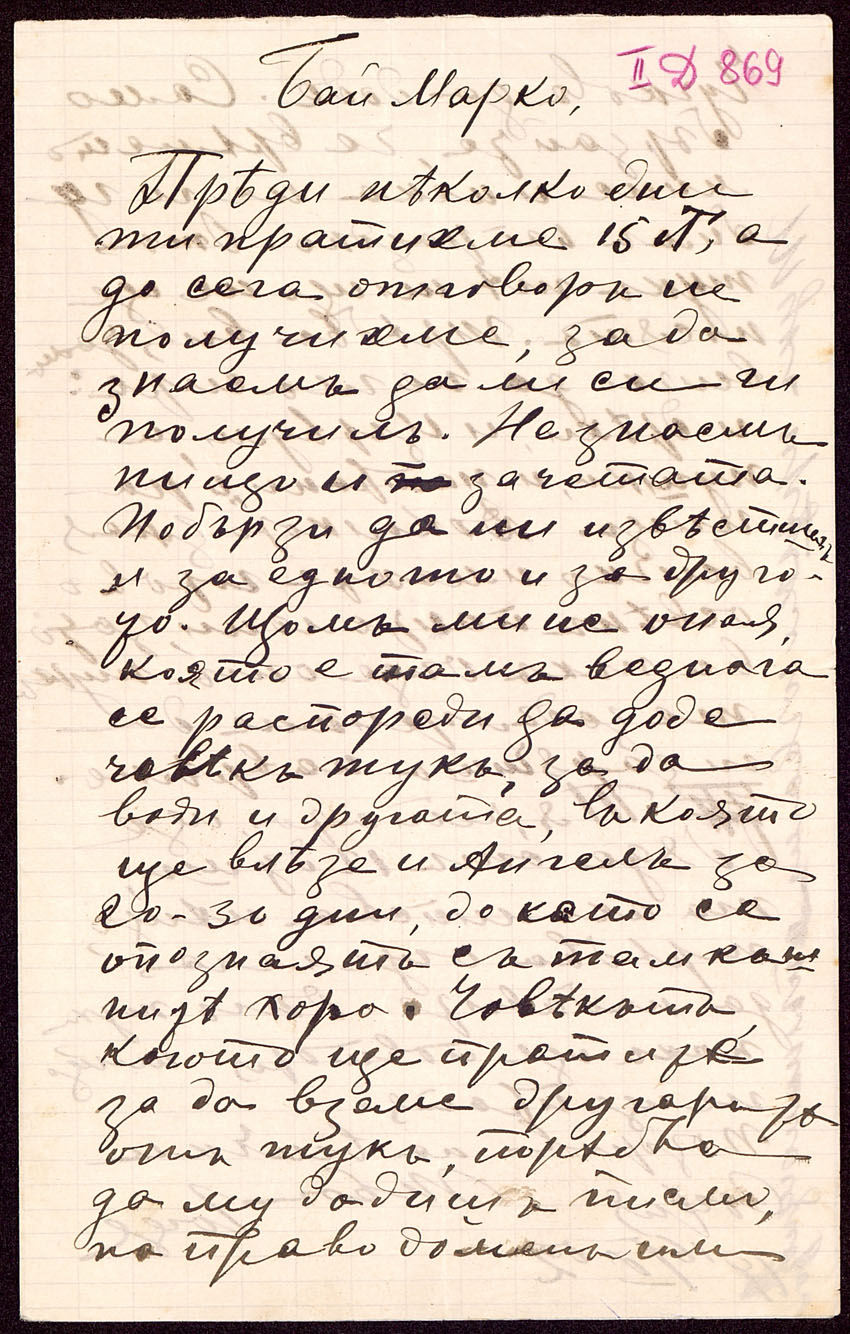 II Д 869
Бай Марко,
Прѣди нѣколко дни
ти пратихме 15 Л, а
до сега отговоръ не
получихме, за да
знаемъ дали си ги
получилъ. Не знаемъ
нищо и за четата.
Побързи да ни извѣстишъ
и за едното и за друго-
то. Щомъ мине оная,
която е тамъ веднага
се распореди да доде
човѣкъ тукъ, за да
води и другата, въ която
ще влѣзе и Ангелъ за
20-30 дни, докато се
опознаятъ съ тамкаш-
нитѣ хора. Човѣкътъ,
когото ще пратите
за да вземе другаритѣ
отъ тукъ, трѣбва
да му дадишъ писмо,
направо до менъ или